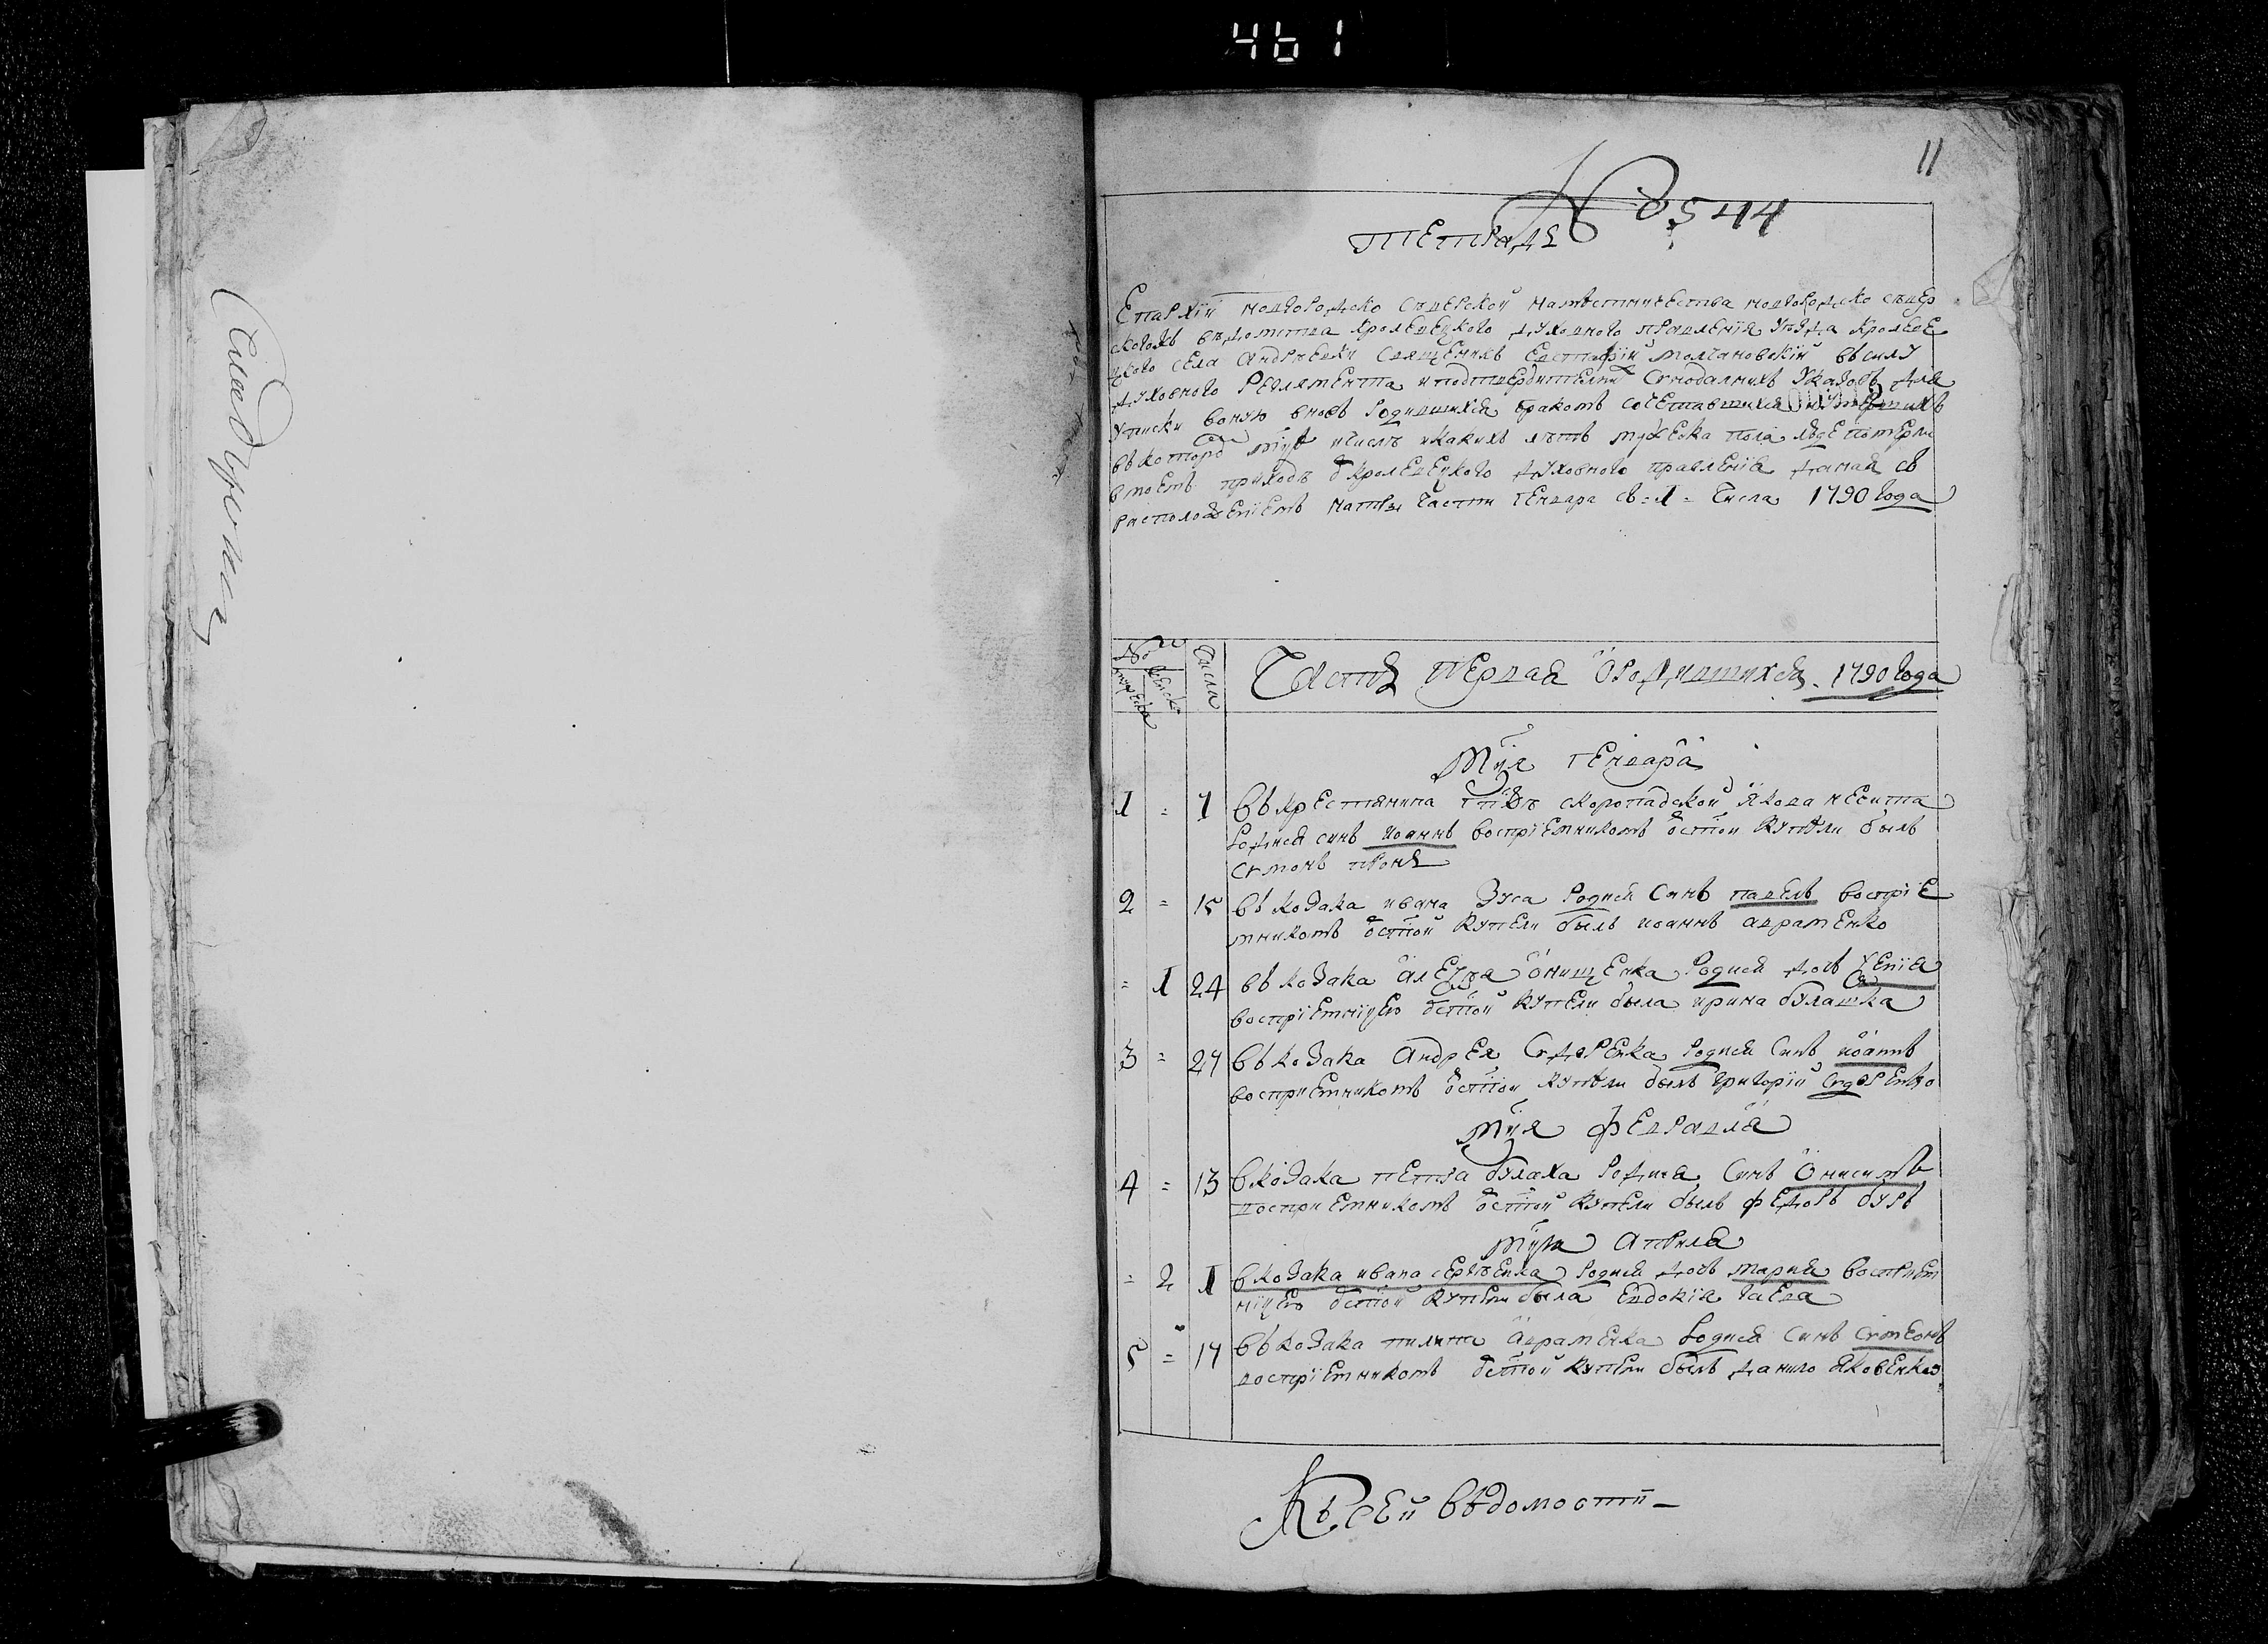 461
11
№ 544
тетрадь
Епархіи новгородско северской наместничества новгородско север
скогожъ ведомства кролевецкого духовного правленія уезда кролеве
цкого села андреевки священикъ евстафій молчановскій въ силу
духовного регламента и подтвердителнихъ сѵнодалнихъ указовъ для
уписки въ оную вновъ родившихся бракомъ сочетавшихся
въ которо мцѣ и числѣ и какихъ летъ мужеска пола
в моемъ приходѣ ѿ кролевецкого духовного правленія даная съ
расположеніемъ на три части генвара съ = 1 = числа 1790 года
№
мужеска
женска
числа
Часть первая ѡ родившихся. 1790 года
мця генвара
1 = 1 въ крестянина скоропадской якова
родися синъ иоаннъ воспріемникомъ ѿ стои купѣли былъ
сѵмонъ
2 = 15 въ козака ивана зуса родися синъ павелъ воспріе
мникомъ ѿ стои купели былъ иоаннъ авраменко
= 1 24 въ козака ѡнищенка родися дочь
воспріемницею ѿ стои купели была ирина булашка
3 = 27 въ козака андрея сѵдоренка родися синъ иоаннъ
восприемникомъ ѿ стои купѣли былъ григорій сѵдоренко
мця февраля
4 = 13 в козака петра булаха родися синъ ѡнисимъ
восприемникомъ ѿ стои купели былъ федоръ буръ
мця априля
= 2 1 в козака ивана сергѣенка родися дочь мария восприем
ницею ѿ стои купели была евдокія
5 = 17 въ козака пилипа авраменка родися синъ сѵмеонъ
воспріемникомъ ѿ стои купели былъ данило яковенко
Къ сей вѣдомости